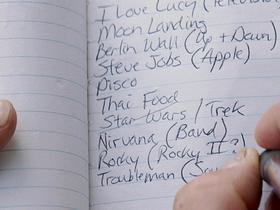 I Love Lucy (Television
Moon Landing
Berlin Wall (Up + Down)
Steve Jobs (Apple)
Disco
Thai Food
Star Wars / Trek
Nirvana (Band)
Rocky (Rocky II?)
Troubleman (Sou